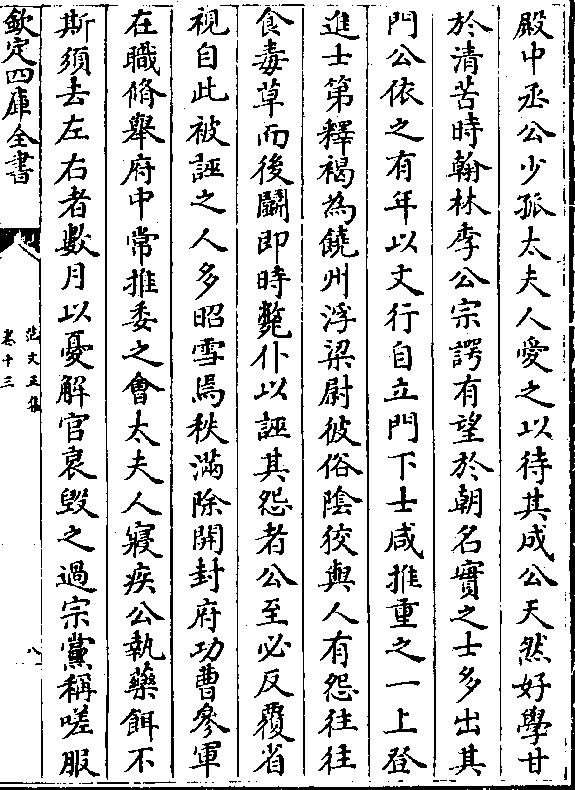 殿中丞公少孤太夫人愛之以待其成公天然好學甘
於清苦時翰林李公宗諤有望於朝名實之士多出其
門公依之有年以文行自立門下士咸推重之一上登
進士第釋褐為饒州浮梁尉彼俗陰狡與人有怨往往
食毒草而後鬭即時斃仆以誣其怨者公至必反覆省
視自此被誣之人多昭雪焉秩滿除開封府功曹參軍
在職脩舉府中常推委之會太夫人寢疾公執藥餌不
斯須去左右者數月以憂解官哀毀之過宗黨稱嗟服
欽定四庫全書
范文正集
卷十三
八